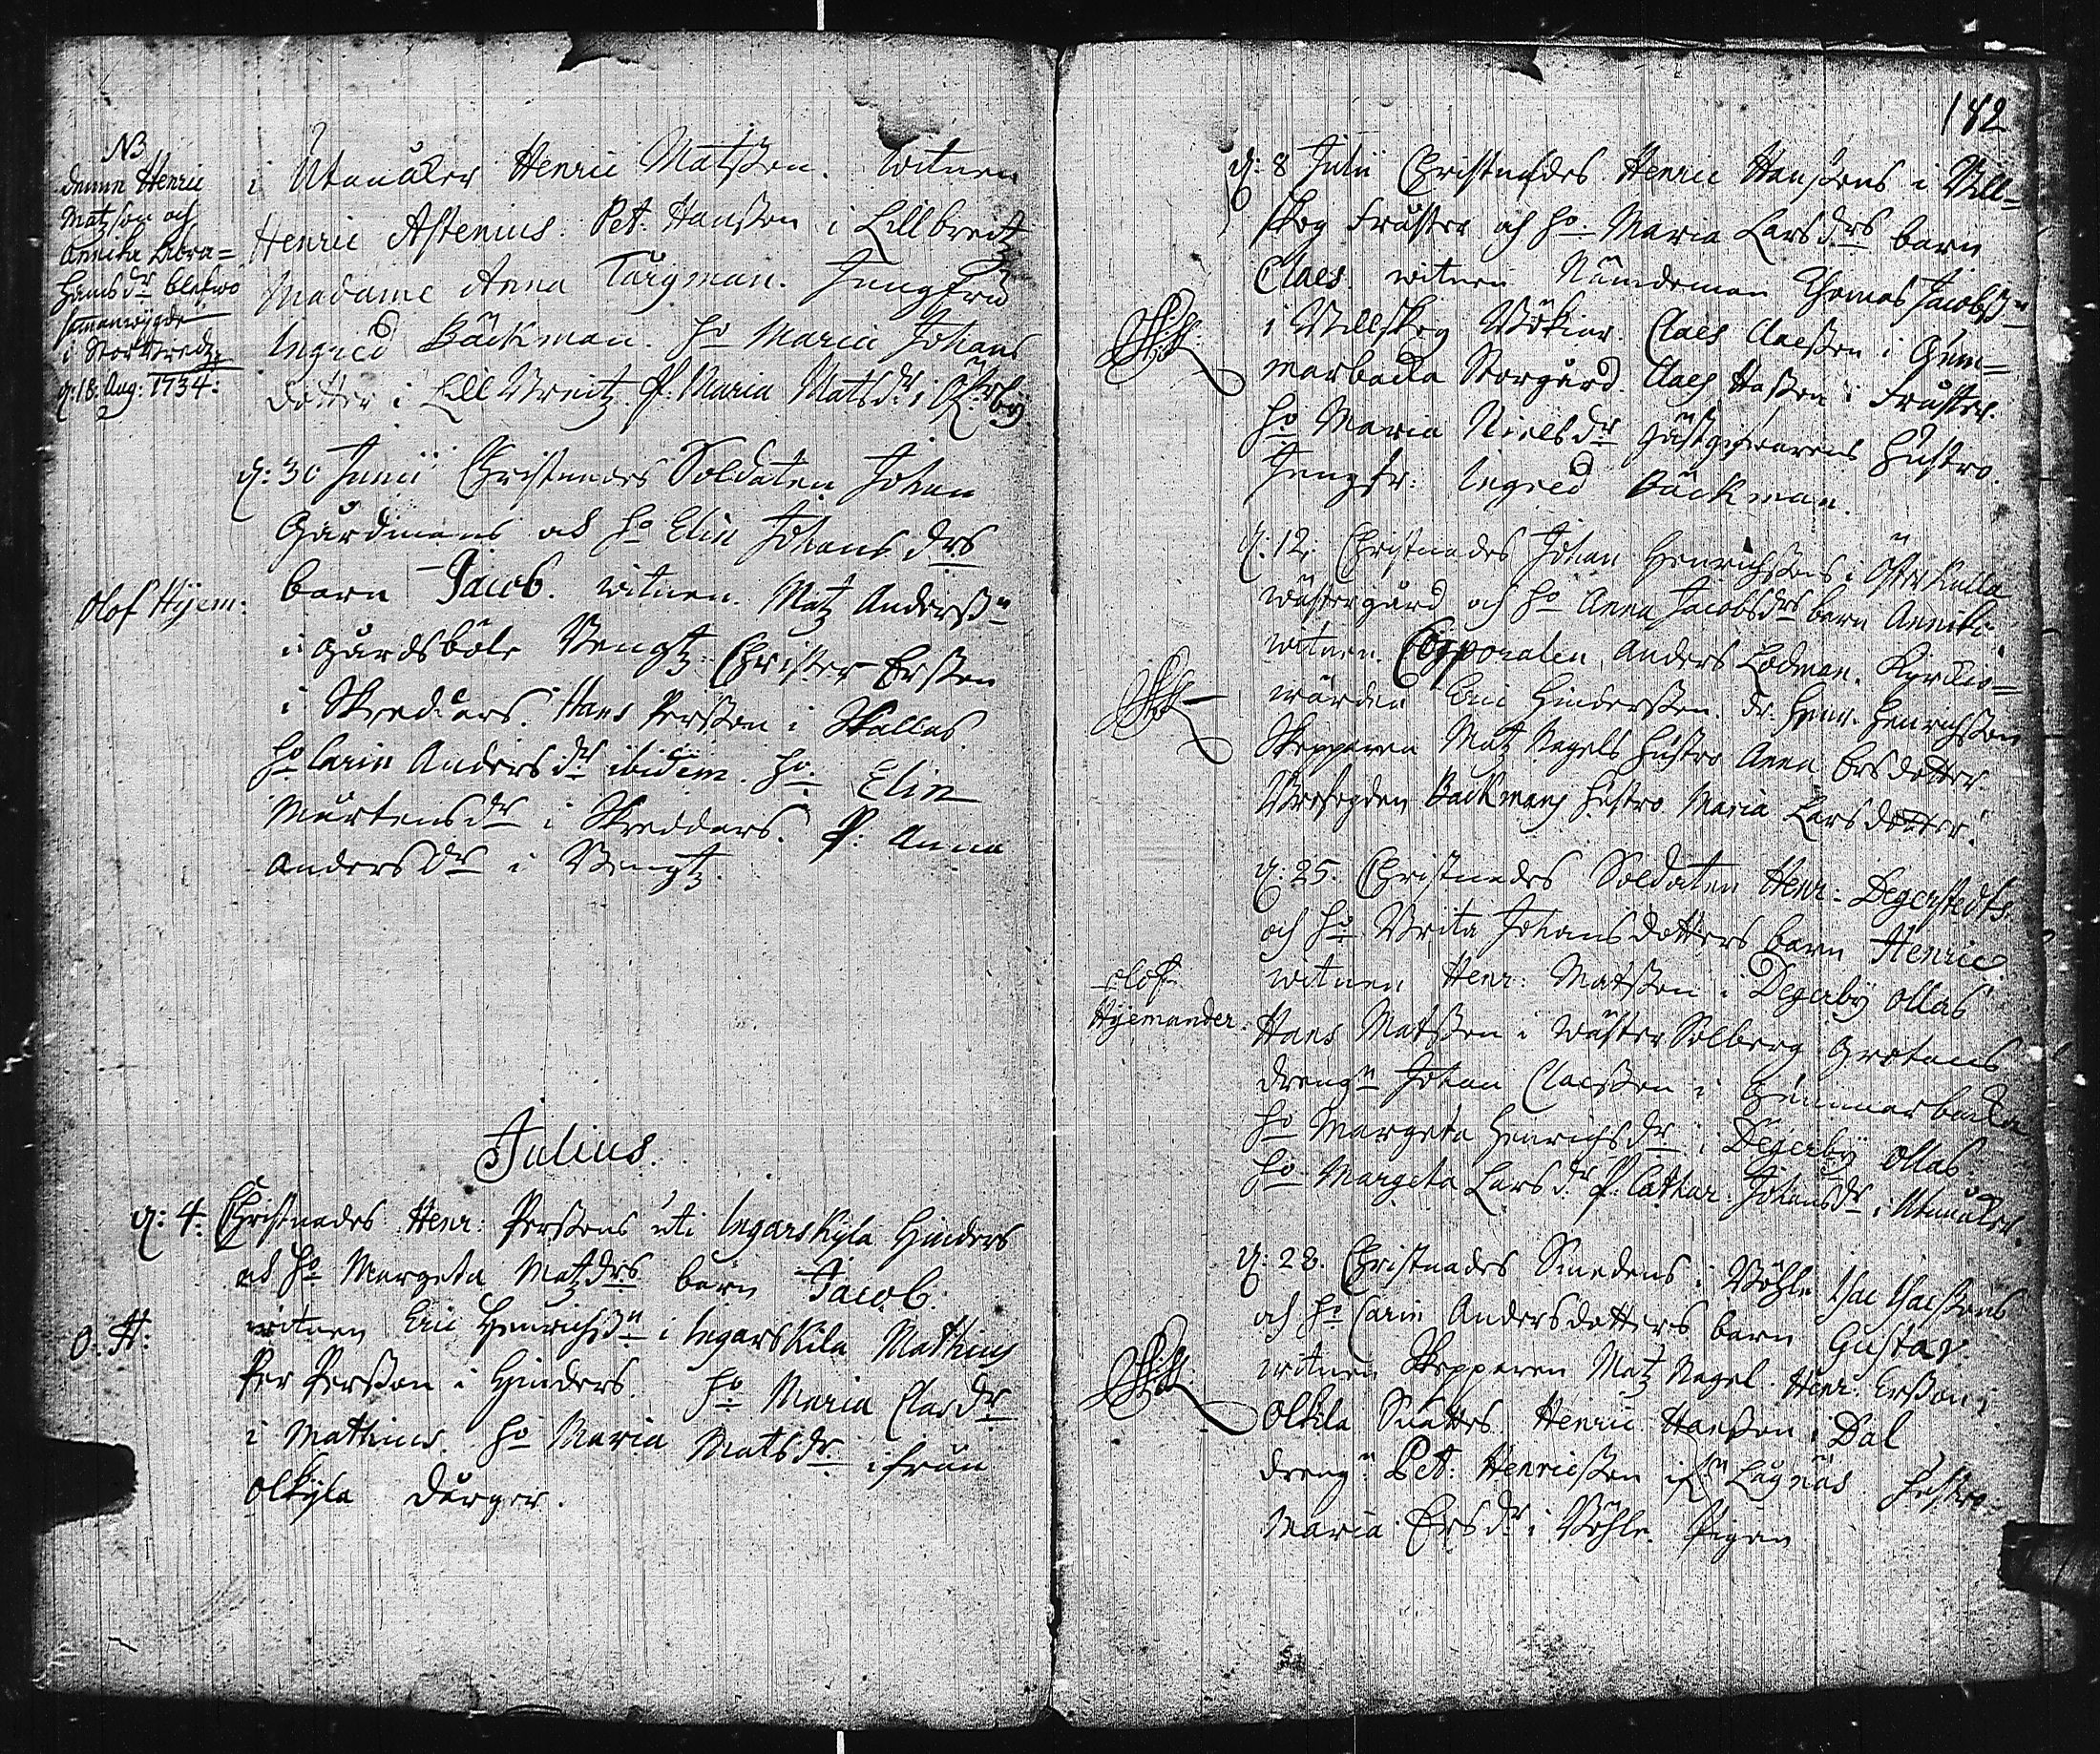 NB
denna Henric
Matzson och
Annika Abra=
hamsdr blefwo
samanwigde
i Stor Breitz
d: 18. Aug: 1734:
i Utanåker Henric Matsson. Witnen
Henric Astenius. Pet: Hansson i Lillbreitz
Madame Anna Targman. Jungfru
Ingred Bäckman. Ho Maria Johans
dotter i Lill Breitz P: Maria Matsdr i Österby
d: 30 Junii Christnades Soldaten Johan
Gårdmans od ho Elin Johans drs
Olof Hyem:
barn Jacob. witnen. Matz Anderss n
i Gårdsböle Bengtz. Christer Ersson
i Skreddars. Hans Persson i Skallas
ho Carin Anders dr ibidem. Ho. Elin
Mårtensdr i Skreddars. P: Anna
Anders dr i Bengtz.
Julius.
d: 4. Christnades Henr: Perssons uti Ingarskyla Hinders
od ho Margeta Matzdrs barn Jacob.
O. H:
witnen Eric Henrichss n i Ingarskila Mathius
Per Persson i Hinders. Ho Maria Clasdr
i Mathius. Ho Maria Matsdr ifrån
Olkyla
182
d: 8 Julii Christnades Henric Hanssons i Bill=
skog Fruster och ho Maria Lars drs barn
Claes. witnen Nämdeman Thomas Jacobss n
i Billskog Claes Claesson i Gum=
marbacka Storgård. Claes i Fruster.
Ho Maria Nielsdr Gästgifwarens Hustro.
Jungfr: Ingred Bäckman.
d: 12. Christnades Johan Henrichssons i Österkulla
wästergård och ho Anna Jacobsdrs barn Annika
witnen. Corporalen Anders Lodman. Kyrckio=
wärden Eric Hindersson. dr. Henr. Henrichsson
Skepparen Matz Nagels Hustro Anna Ersdotter.
Backmans Hustro Maria Larsdotter.
d: 25. Christnades Soldaten Henr: Degerstedts
och ho Brita Johans dotters barn Henric
Olof
Hyemander.
witnen Henr: Matsson i Degerby Ollas
Hans Matsson i Wäster Solberg Grotens
dreng n Johan Claesson i Gummarbacka
ho Margeta Henrichs dr i Degerby Ollas
ho Margeta Lars dr P: Cathar: Johansdr i Utanåker.
d: 28. Christnades Smedens i Böhle Isac Isacssons
och ho Carin Andersdotters barn Gustav.
witnen Skepparen Matz Nagel. Henr. Ersson i
Olkila Henric Hansson i Dal
dreng n Pet: Henricsson Lågnäs Hustro
Maria Ers dr i Böhle. Pigan